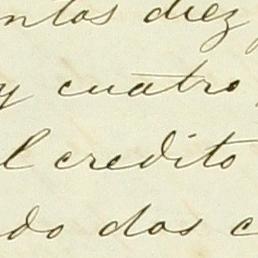 ntos diez
y cuatro
l credito
do dos c